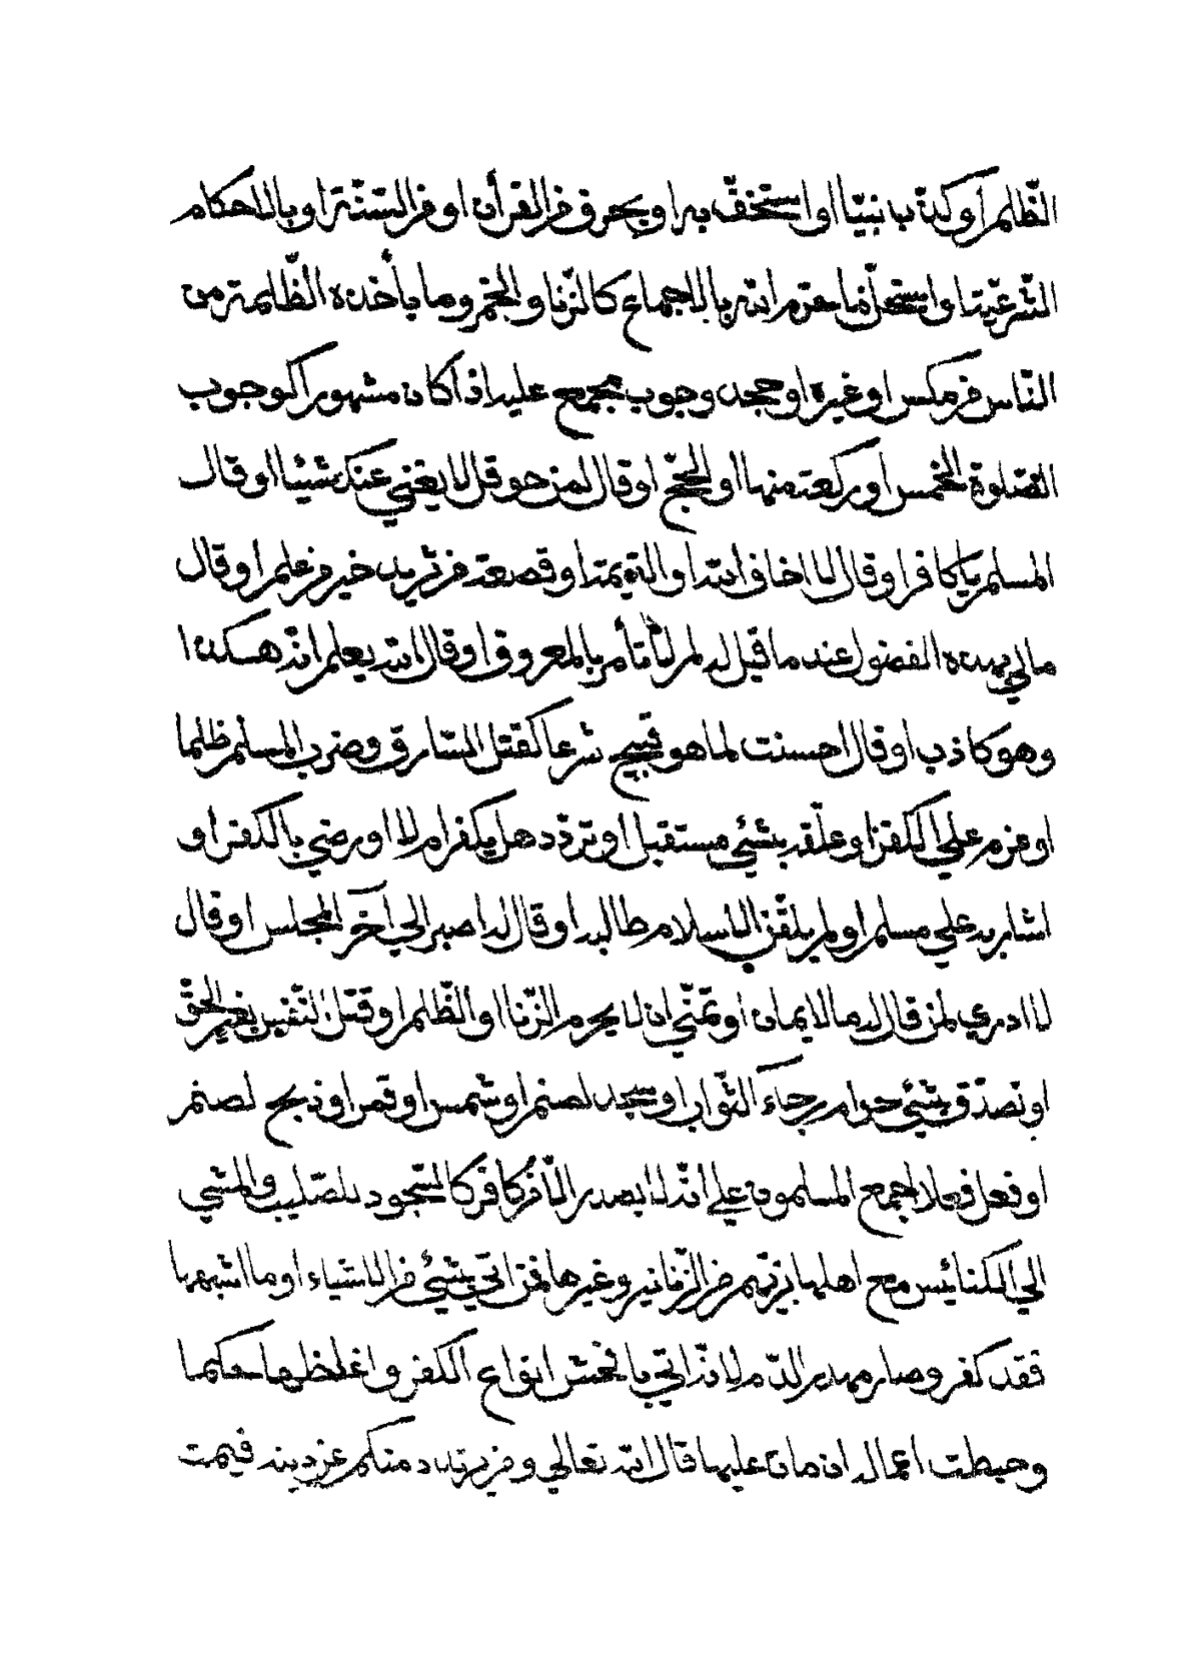 الظّالم أو كذّب نبيّا او استخفّ به او بحرف من القرأن او من السّنّة او بالاحكام
الشّرعيّة او استحلّ ما حرم الله بالاجماع كالزّنا و الخمر وما يأخذه الظّلمة من
النّاس من مكس او غيره او جحد وجوب مجمع عليه اذا كان مشهورا كوجوب
الصّلوة الخمس او ركعة منها او الحجّ او قال لمن حوقل لا يغني عنك شيئا او قال
المسلم يا كافر او قال لا اخاف الله او الآدمة او قصعة من ثريد خير من علم او قال
مالي بهذه الفضول عند ما قيل له لم لا تأمر بالمعروف او قال الله يعلم انّه هكذا
وهو كاذب او قال احسنت لما هو قبيح شرعا كقتل السّارق وضرب المسلم ظلما
او عزم على الكفر او علّقه بشئي مستقبل او تردّد هل يكفر ام لا او رضي بالكفر او
اشار به علي مسلم او لم يلقّن الاسلام طالبه او قال له اصبر الي آخر المجلس او قال
لا ادري لمن قال له ما الايمان او تمنّي ان لا يحرم الزّنا او الظّلم او قتل النّفس بغير الحقّ
او تصدّق بشئي حرام رجاء الثّواب او سجد لصنم او شمس او قمر او ذبح لصنم
او فعل فعلا اجمع المسلمون علي انّه لا يصدر الّا من كافر كالسّجود للصّليب والمشي
الي الكنائيس مع اهلها بزيّهم من الزّنانير وغيرها فمن اتي بشئي من الاشياء او ما اشبهها
فقد كفر وصار مهدر الدّم لانّه اتي بافحش انواع الكفر و اغلظها حكما
وحبطت اعماله ان مات عليها قال الله تعالي و من يرتدد منكم عن دينه فيمت